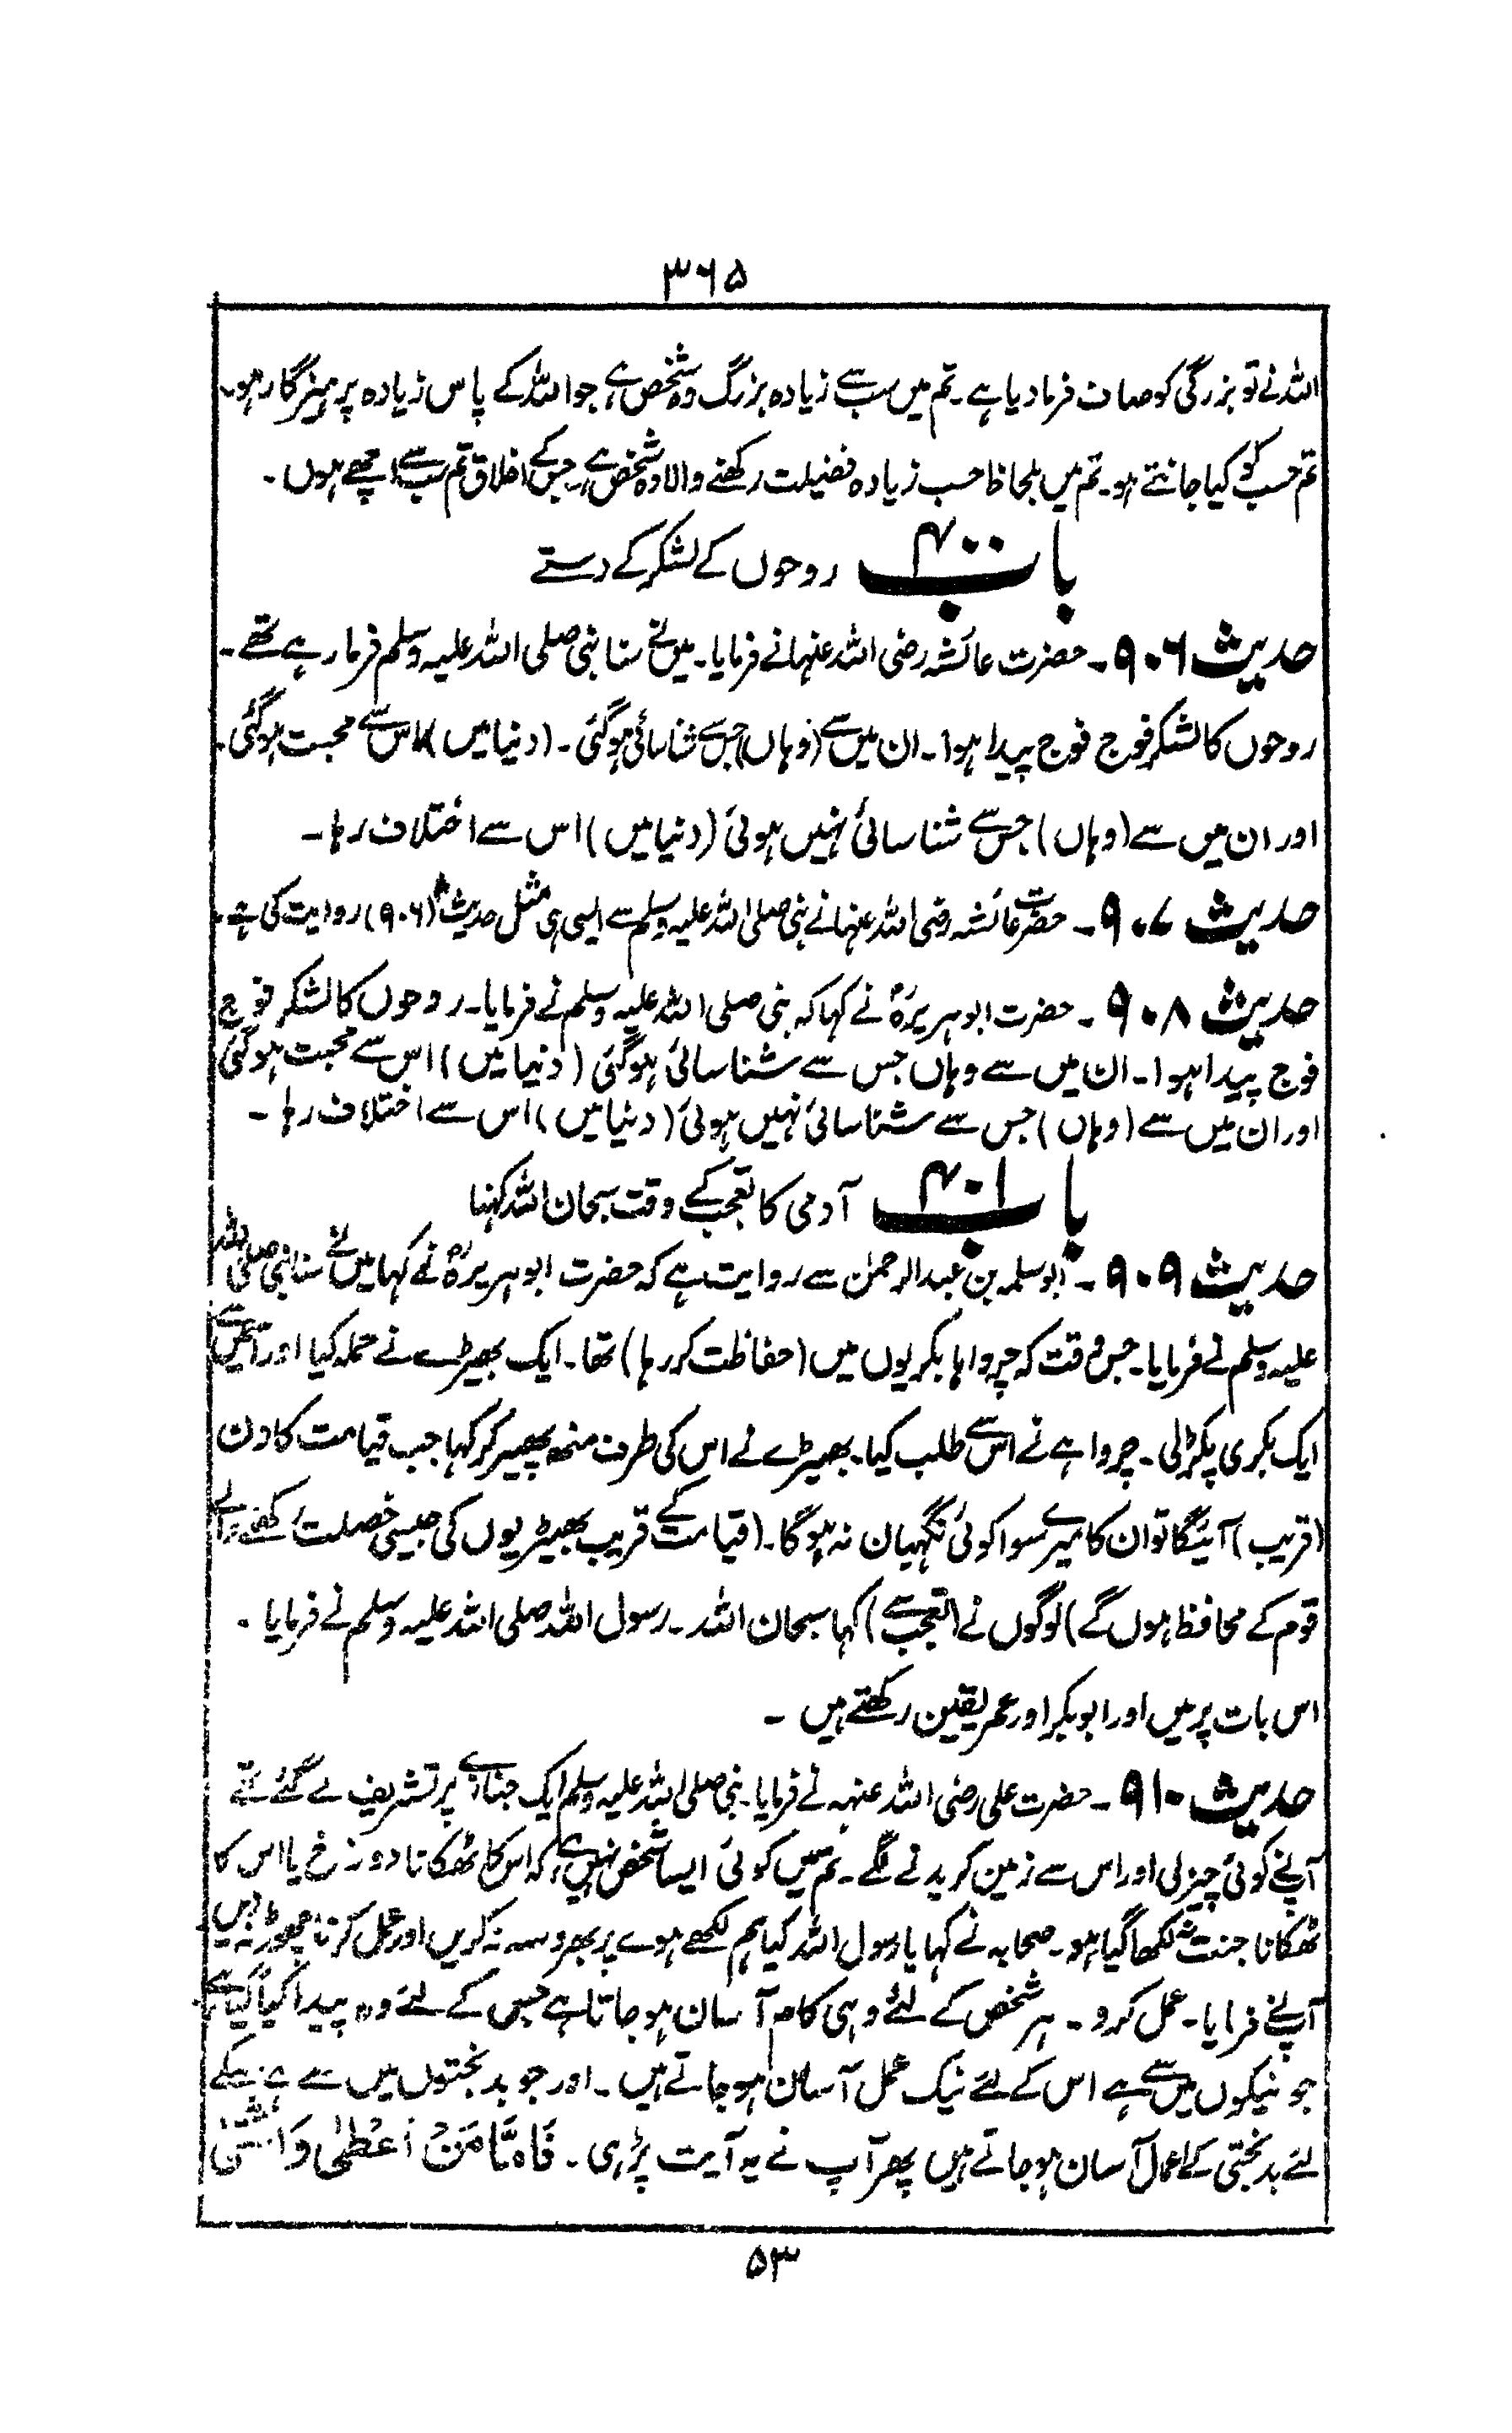 ۳۶۵
اللہ نے تو بزرگی کو صاف فرما دیا ہے۔ تم میں سب سے زیادہ بزرگ وہ شخص ہے جو اللہ کے پاس زیادہ پرہیزگار ہو۔
تم حسب کو کیا جانتے ہو۔ تم میں بلحاظ حسب زیادہ فضیلت رکھنے والا وہ شخص ہے جس کے اخلاق تم سب سے اچھے ہوں۔
باب ۴۰۰ روحوں کے لشکر کے دستے
حدیث ۹۰۶۔ حضرت عائشہ رضی اللہ عنہا نے فرمایا۔ میں نے سنا نبی صلی اللہ علیہ وسلم فرما رہے تھے۔
روحوں کا لشکر فوج فوج پیدا ہوا۔ ان میں سے (وہاں) جس سے شناسائی ہوگئی۔ (دنیا میں) اس سے محبت ہوگئی۔
اور ان میں سے (وہاں) جس سے شناسائی نہیں ہوئی (دنیا میں) اس سے اختلاف رہا۔
حدیث ۹۰۷۔ حضرت عائشہ رضی اللہ عنہا نے نبی صلی اللہ علیہ وسلم سے ایسی ہی مثل حدیث (۹۰۶) روایت کی ہے۔
حدیث ۹۰۸۔ حضرت ابوہریرہؓ نے کہا کہ نبی صلی اللہ علیہ وسلم نے فرمایا۔ روحوں کا لشکر فوج
فوج پیدا ہوا۔ ان میں سے وہاں جس سے شناسائی ہوگئی (دنیا میں) اس سے محبت ہوگئی
اور ان میں سے (وہاں) جس سے شناسائی نہیں ہوئی (دنیا میں) اس سے اختلاف رہا۔
باب ۴۰۱ آدمی کا تعجب کے وقت سبحان اللہ کہنا
حدیث ۹۰۹۔ ابوسلمہ بن عبدالرحمٰن سے روایت ہے کہ حضرت ابوہریرہؓ نے کہا میں نے سنا نبی صلی اللہ
علیہ وسلم نے فرمایا۔ جس وقت کہ چرواہا بکریوں میں (حفاظت کر رہا) تھا۔ ایک بھیڑے نے حملہ کیا اور اس میں سے
ایک بکری پکڑلی۔ چرواہے نے اس سے طلب کیا۔ بھیڑے نے اس کی طرف منہ پھیر کر کہا جب قیامت کا دن
(قریب) آئیگا تو ان کا میرے سوا کوئی نگہبان نہ ہوگا۔ (قیامت کے قریب بھیڑیوں کی جیسی خصلت رکھنے والے
قوم کے محافظ ہوں گے) لوگوں نے (تعجب سے) کہا سبحان اللہ۔ رسول اللہ صلی اللہ علیہ وسلم نے فرمایا۔
اس بات پر میں اور ابوبکر اور عمر یقین رکھتے ہیں۔
حدیث ۹۱۰۔ حضرت علی رضی اللہ عنہہ نے فرمایا۔ نبی صلی اللہ علیہ وسلم ایک جنازے پر تشریف لے گئے تھے
آپ نے کوئی چیز لی اور اس سے زمین کریدنے لگے۔ تم میں کوئی ایسا شخص نہیں ہے کہ اس کا ٹھکانا دوزخ یا اس کا
ٹھکانا جنت نہ لکھا گیا ہو۔ صحابہ نے کہا یا رسول اللہ کیا ہم لکھے ہوے پر بھروسہ نہ کریں اور عمل کرنا چھوڑ نہ دیں۔
آپ نے فرمایا۔ عمل کرو۔ ہر شخص کے لئے وہی کام آسان ہوجاتا ہے جس کے لئے وہ پیدا کیا گیا ہے۔
جو نیکوں میں سے ہے اس کے لئے نیک عمل آسان ہوجاتے ہیں۔ اور جو بدبختوں میں سے ہے اسکے
لئے بدبختی کے اعمال آسان ہوجاتے ہیں پھر آپ نے یہ آیت پڑہی۔ فَاَمَّا مَنْ اَعْطٰی وَاتَّقٰی
۵۳